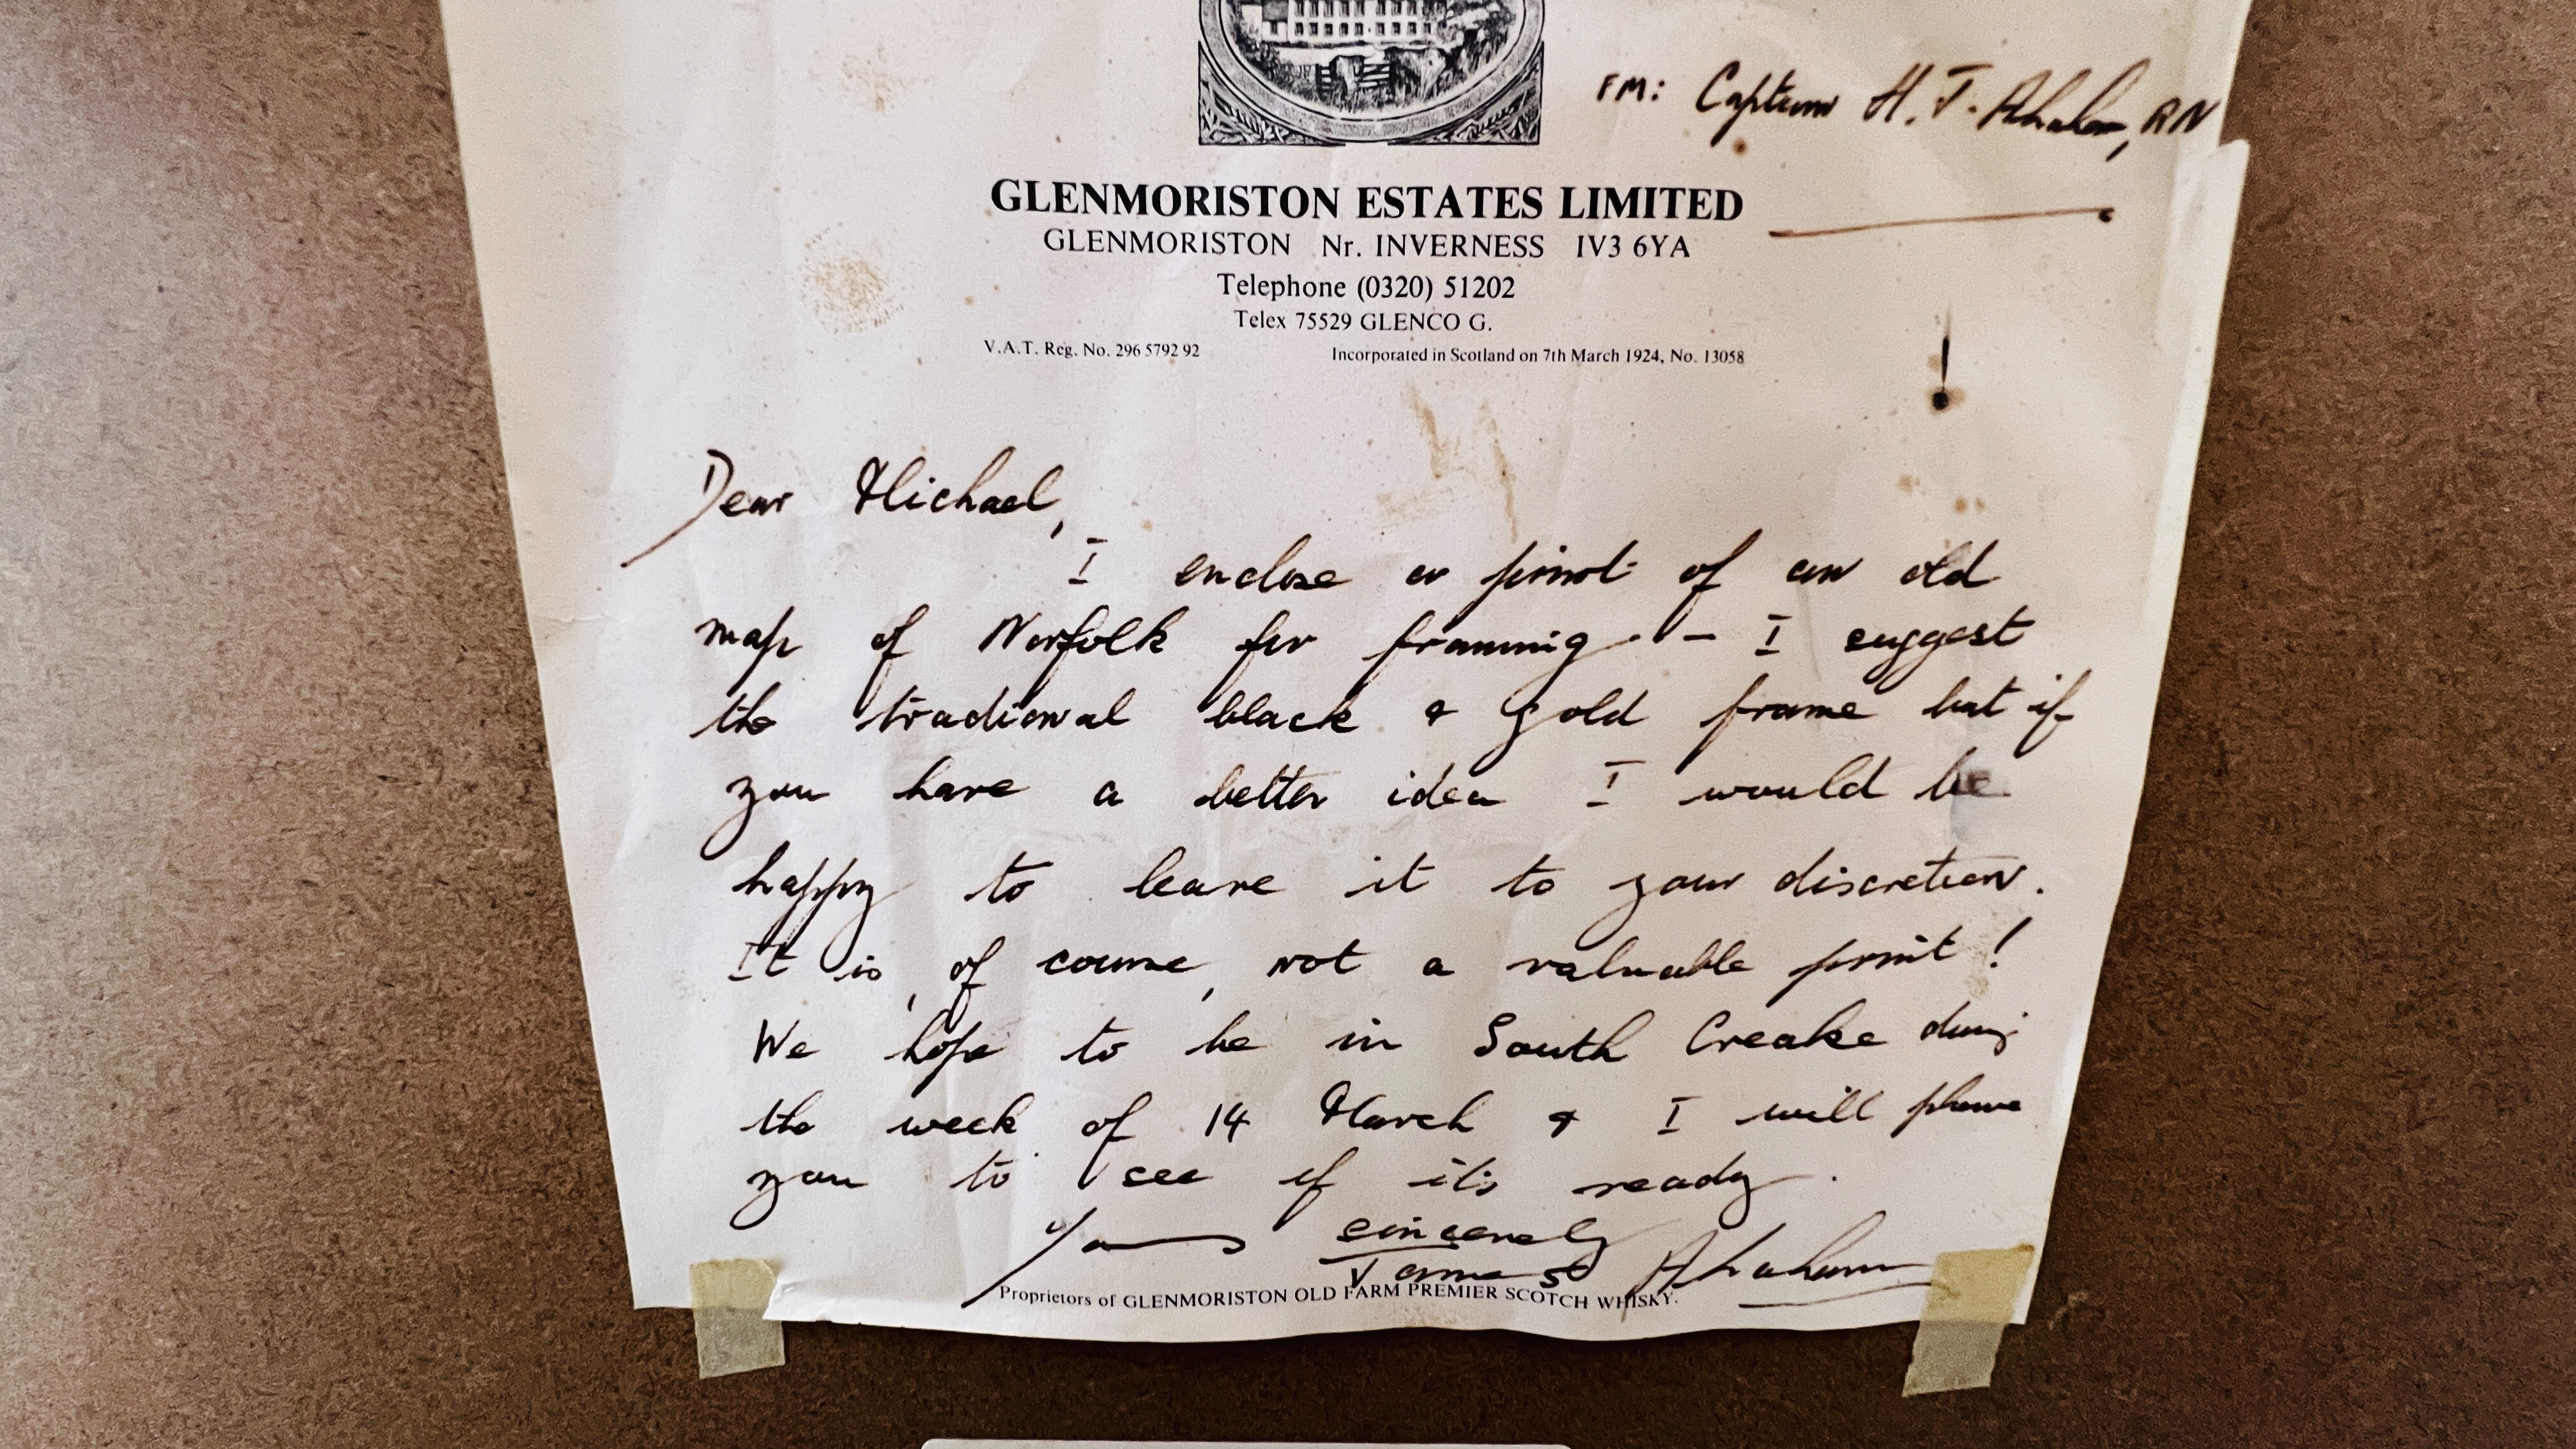 FM: Captain H. J. Abraham, RN
GLENMORISTON ESTATES LIMITED
GLENMORISTON Nr. INVERNESS IV3 6YA
Telephone (0320) 51202
Telex 75529 GLENCO G.
V.A.T. Reg. No. 296 5792 92 Incorporated in Scotland on 7th March 1924, No. 13058
Dear Michael,
I enclose a print of an old
map of Norfolk for framing - I suggest
the tradional black & gold frame but if
you have a better idea I would be
happy to leave it to your discretion.
It is, of course, not a valuable print!
We hope to be in South Creake during
the week of 14 March & I will phone
you to see if it's ready.
Yours sincerely
James Abraham
Proprietors of GLENMORISTON OLD FARM PREMIER SCOTCH WHISKY.